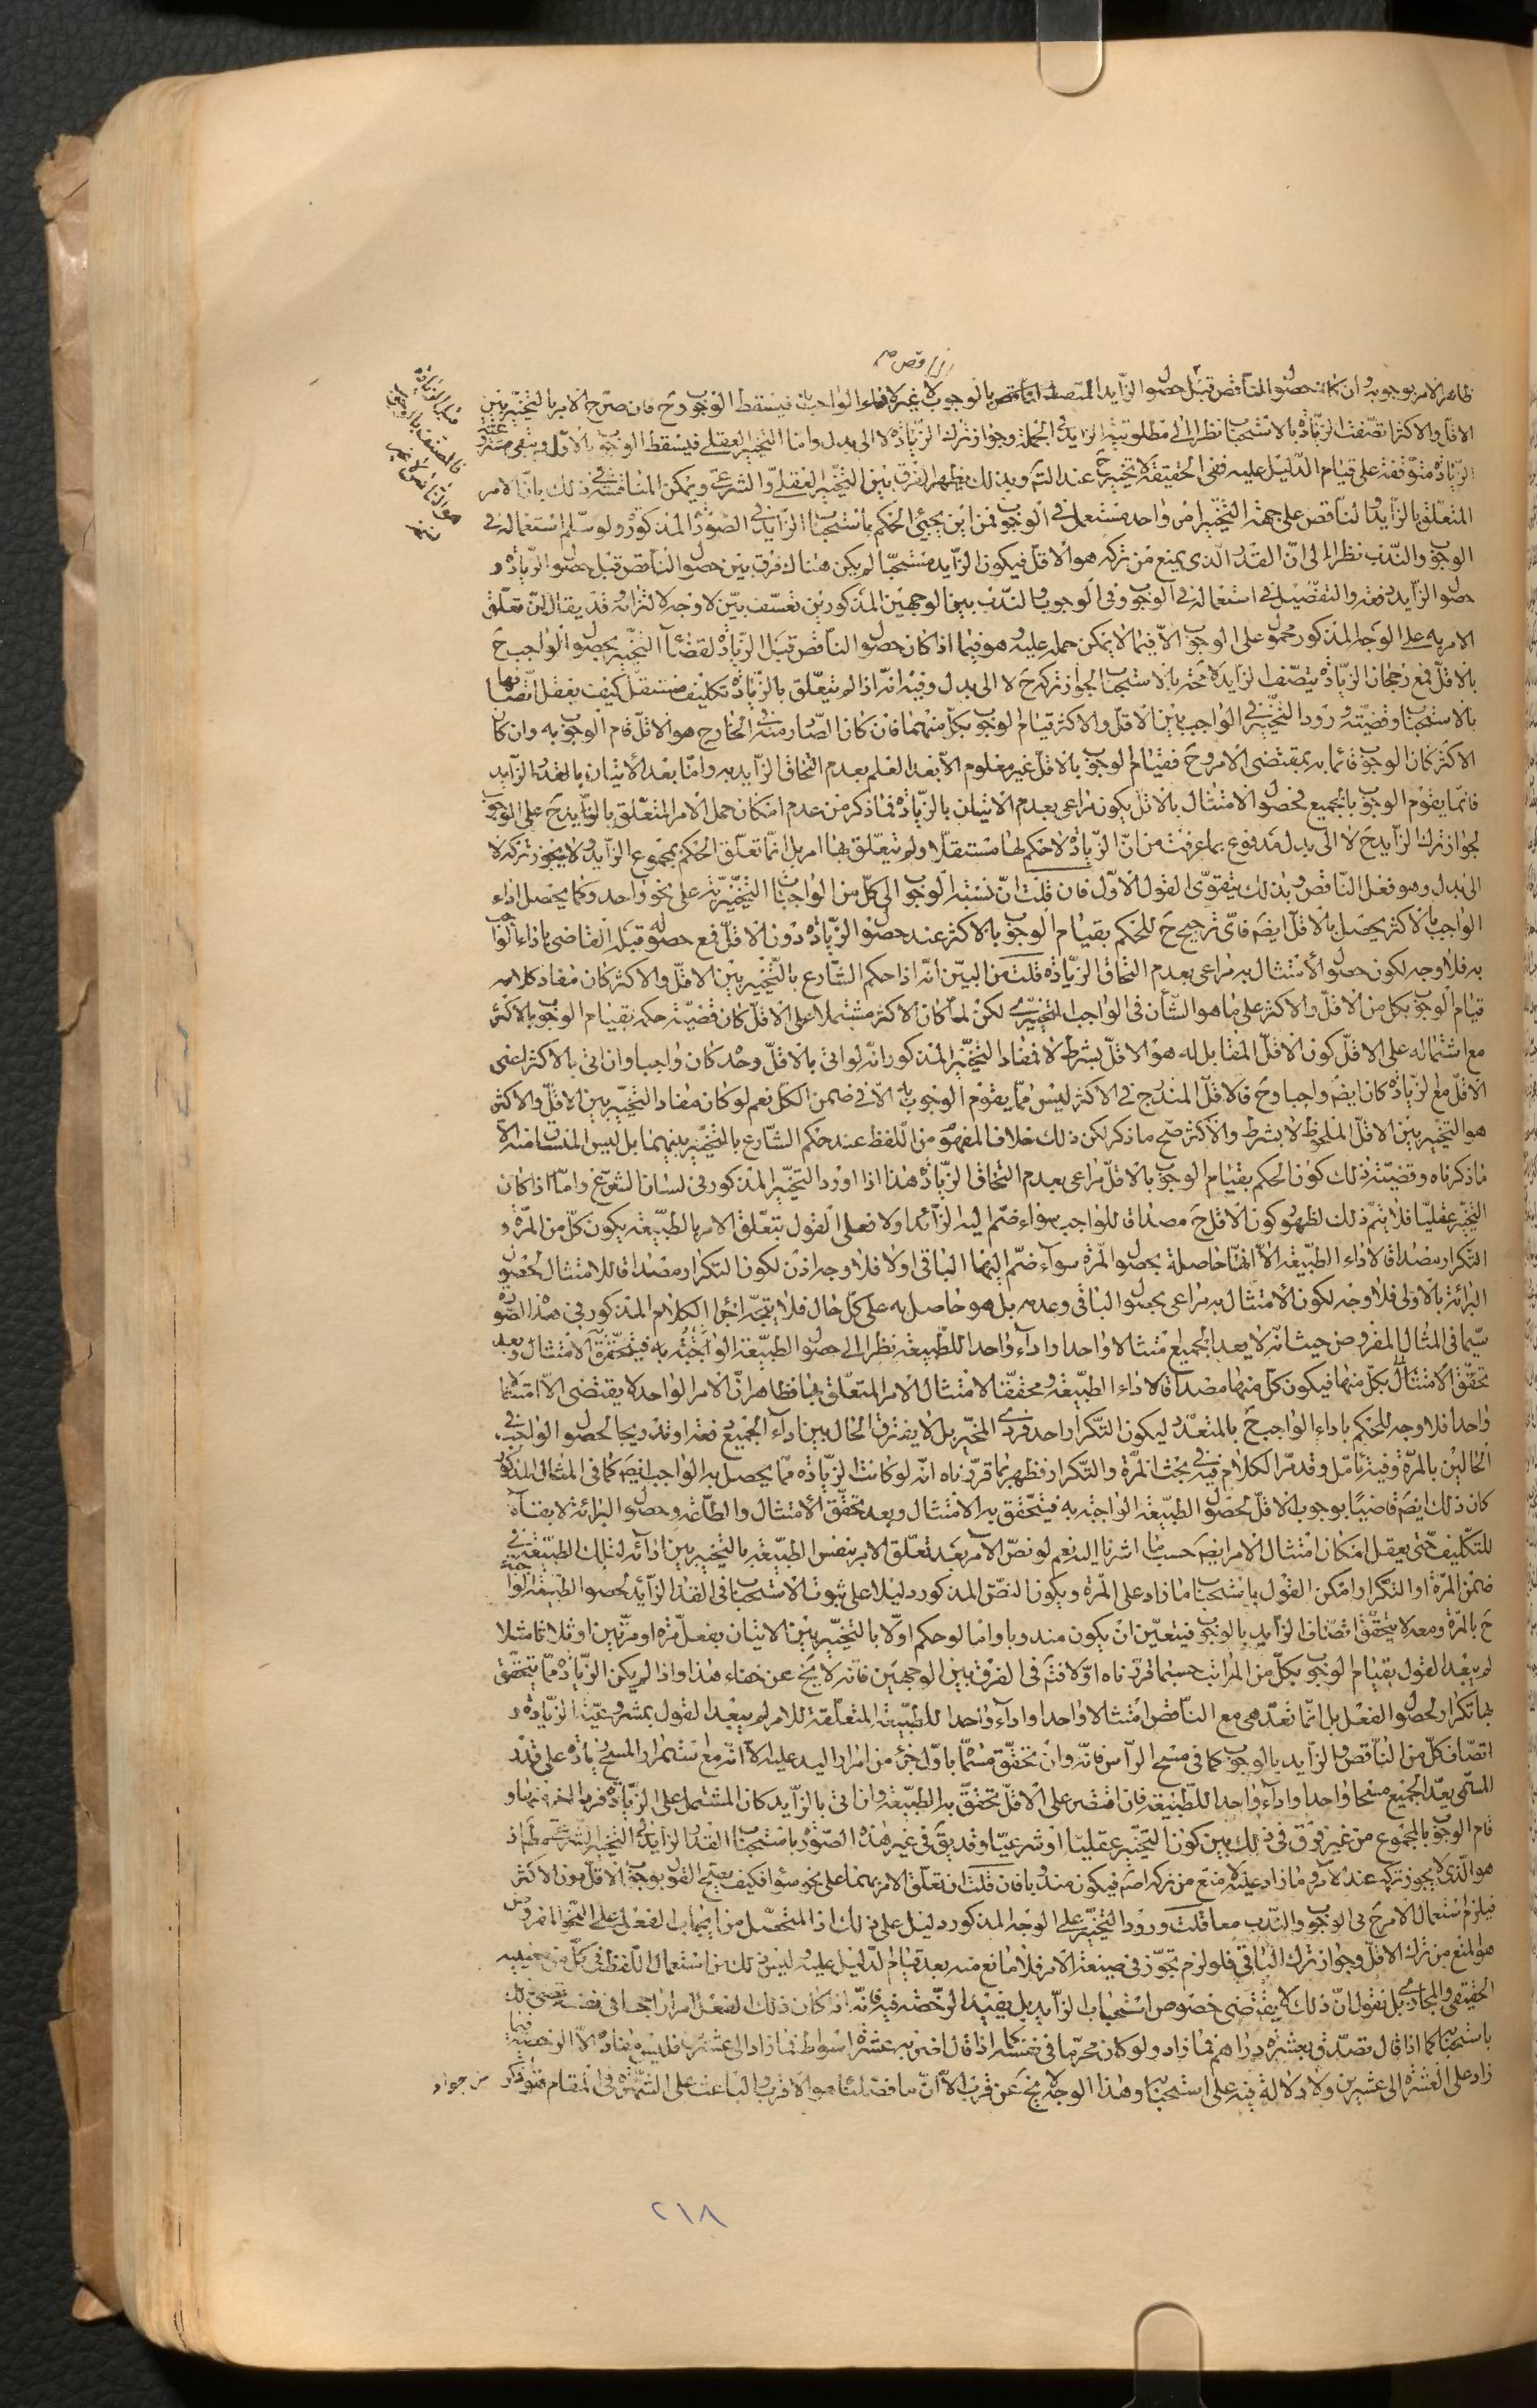 ظاهر الامر بوجوبه وان كان حصول الناقص قبل حصول الزايد المتصف الناقص بالوجوب لا غير لاداء الواجب فيسقط الوجوب وح فان صرح الامر بالتخيير بين
الاقل والاكثر اتصفت الزيادة بالاستحباب نظرا الى مطلوبية الزايد في الجملة وجواز ترك الزيادة لا الى بدل واما التخيير العقلي فيسقط الوجوب بالاقل ويبقى مشروعية
الزيادة متوقفة على قيام الدليل عليه ففي الحقيقة لا تخيير ح عند التم وبذلك يظهر الفرق بين التخيير العقلي والشرعي ويمكن المناقشة في ذلك بان الامر
المتعلق بالزايد والناقص على جهة التخيير امر واحد مستعمل في الوجوب فمن اين يجيئ الحكم باستحباب الزايد في الصورة المذكورة ولو سلم استعماله في
الوجوب والندب نظرا الى ان القدر الذى يمنع من تركه هو الاقل فيكون الزايد مستحبا لم يكن هناك فرق بين حصول الناقص قبل حصول الزيادة و
حصول الزايد دفعة والتفصيل في استعماله في الوجوب وفي الوجوب والندب بين الوجهين المذكورين تعسف بين لا وجه لالتزامه قد يقال ان تعلق
الامر به على الوجه المذكور محمول على الوجوب الا فيما لا يمكن حمله عليه وهو فيما اذا كان حصول الناقص قبل الزيادة لقضاء التخيير بحصول الواجب ح
بالاقل فمع رجحان الزيادة يتصف الزايد لا محة بالاستحباب لجواز تركه ح لا الى بدل وفيه انه اذا لم يتعلق بالزيادة تكليف مستقل كيف يعقل اتصافها
بالاستحباب وقضيته ورود التخيير في الواجب بين الاقل والاكثر قيام الوجوب بكل منهما فان كان الصادر منه في الخارج هو الاقل قام الوجوب به وان كان
الاكثر كان الوجوب قائما به بمقتضى الامر وح فقيام الوجوب بالاقل غير معلوم الا بعد العلم بعدم التحاق الزايد به واما بعد الاتيان بالقدر الزايد
فانما يقوم الوجوب بالجميع فحصول الامتثال بالاقل يكون مراعى بعدم الاتيان بالزيادة فما ذكر من عدم امكان حمل الامر المتعلق بالزايد ح على الوجوب
لجواز ترك الزايد ح لا الى بدل مدفوع بما عرفت من ان الزيادة لا حكم لها مستقلا ولم يتعلق بها امر بل انما تعلق الحكم بمجموع الزايد ولا يجوز تركه لا
الى بدل وهو فعل الناقص وبذلك يتقوى القول الاول فان قلت ان نسبة الوجوب الى كل من الواجبات التخييرية على نحو واحد وكما يحصل اداء
الواجب بالاكثر يحصل بالاقل ايضا فاى ترجيح ح للحكم بقيام الوجوب بالاكثر عند حصول الزيادة دون الاقل فمع حصوله قبله القاضى باداء الواجب
به فلا وجه لكون حصول الامتثال به مراعى بعدم التحاق الزيادة قلت من البين انه اذا حكم الشارع بالتخيير بين الاقل والاكثر كان مفاد كلامه
قيام الوجوب بكل من الاقل والاكثر على ما هو الشأن فى الواجب التخييرى لكن لما كان الاكثر مشتملا على الاقل كان قضية حكمه بقيام الوجوب بالاكثر
مع اشتماله على الاقل كون الاقل المقابل له هو الاقل بشرط لا فمفاد التخيير المذكور انه لو اتى بالاقل وحده كان واجبا وان اتى بالاكثر اعنى
الاقل مع الزيادة كان ايضا واجبا وح فالاقل المندرج في الاكثر ليس مما يقوم الوجوب به الا في ضمن الكل نعم لو كان مفاد التخيير بين الاقل والاكثر
هو التخيير بين الاقل الملحوظ لا بشرط والاكثر صح ما ذكر لكن ذلك خلاف المفهوم من اللفظ عند حكم الشارع بالتخيير بينهما بل ليس المنساق منه الا
ما ذكرناه وقضية ذلك كون الحكم بقيام الوجوب بالاقل مراعى بعدم التحاق الزيادة هذا اذا ورد التخيير المذكور في لسان الشرع واما اذا كان
التخيير عقليا فلا يتم ذلك لظهور كون الاقل ح مصداقا للواجب سواء ضم اليه الزائد اولا فعلى القول بتعلق الامر بالطبيعة يكون كل من المرة و
التكرار مصداقا لاداء الطبيعة الا انها حاصلة بحصول المرة سواء ضم اليها الباقى اولا فلا وجه اذن لكون التكرار مصداقا للامتثال لحصول
البرائة بالاولى فلا وجه لكون الامتثال به مراعى بحصول الباقى وعدمه بل هو حاصل به على كل حال فلا يتجه اجراء الكلام المذكور في هذه الصورة
سيما فى المثال المفروض حيث انه لا يعد الجميع امتثالا واحدا واداء واحدا للطبيعة نظرا الى حصول الطبيعة الواجبة به فيتحقق الامتثال وبعد
تحقق الامتثال بكل منها فيكون كل منها مصداقا لاداء الطبيعة ومحققا لامتثال الامر المتعلق بها فظاهر ان الامر الواحد لا يقتضى الا امتثالا
واحدا فلا وجه للحكم باداء الواجب ح بالمتعدد ليكون التكرار احد فردى المخير بل لا يفترق الحال بين اداء الجميع دفعة او تدريجا لحصول الواجب في
الحالين بالمرة وفيه تامل وقد مر الكلام فيه في بحث المرة والتكرار فظهر بما قررناه انه لو كانت الزيادة مما يحصل به الواجب ايضا كما فى المثال المذكور
كان ذلك ايضا قاضيا بوجوب الاقل لحصول الطبيعة الواجبة به فيتحقق به الامتثال وبعد تحقق الامتثال والطاعة وحصول البرائة لا بقاء
للتكليف حتى يعقل امكان امتثال الامر ايضا حسب ما اشرنا اليه نعم لو نص الامر بعد تعلق الامر بنفس الطبيعة بالتخيير بين ادائه لتلك الطبيعة في
ضمن المرة او التكرار امكن القول باستحباب ما زاد على المرة ويكون النص المذكور دليلا على ثبوت الاستحباب فى القدر الزائد لحصول الطبيعة الواجبة
ح بالمرة ومعه لا يتحقق اتصاف الزايد بالوجوب فيتعين ان يكون مندوبا واما لو حكم اولا بالتخيير بين الاتيان بفعل مرة او مرتين او ثلاثا مثلا
لم يبعد القول بقيام الوجوب بكل من المراتب حسبما قررناه اولا فتم فى الفرق بين الوجهين فانه لا يخ عن خفاء هذا واذا لم يكن الزيادة مما يتحقق
بها تكرار لحصول الفعل بل انما تعد هى مع الناقص امتثالا واحدا واداء واحدا للطبيعة المتعلقة للامر لم يبعد القول بمشروعية الزيادة و
اتصاف كل من الناقص والزايد بالوجوب كما فى مسح الرأس فانه وان تحقق مسما باول جزء من امرار اليد عليه الا انه مع استمرار المسح زيادة على قدر
المسمى يعد الجميع مسحا واحدا واداء واحدا للطبيعة فان اقتصر على الاقل تحقق به الطبيعة وان اتى بالزايد كان المشتمل على الزيادة فردا اخر منها و
قام الوجوب بالمجموع من غير فرق في ذلك بين كون التخيير عقليا او شرعيا وقد يق فى غير هذه الصورة باستحباب القدر الزايد في التخيير الشرعى مط اذ
هو الذى لا يجوز تركه عند الامر وما زاد عليه لا منع من تركه اصلا فيكون مندوبا فان قلت ان تعلق الامر بهما على نحو سواء فكيف يصح القول بوجوب الاقل دون الاكثر
فيلزم استعمال الامر ح فى الوجوب والندب معا قلت ورود التخيير على الوجه المذكور دليل على ذلك اذ المتحصل من ايجاب الفعل على النحو المفروض
هو المنع من ترك الاقل وجواز ترك الباقى فلو لزم تجوز في صيغة الامر فلا مانع منه بعد قيام الدليل عليه وليس ذلك من استعمال اللفظ فى كل من معنييه
الحقيقي والمجازي بل نقول ان ذلك لا يقتضى خصوص استحباب الزايد بل يفيد الرخصة فيه فانه اذا كان ذلك الفعل امرا راجحا فى نفسه قضى ذلك
باستحبابه كما اذا قال تصدق بعشرة دراهم فما زاد ولو كان محرما فى نفسه كما اذا قال اضربه عشرة اسواط فما زاد الى عشرين فليس مفاده الا الرخصة فيما
زاد على العشرة الى عشرين ولا دلالة فيه على استحبابه وهذا الوجه لا يخ عن قرب الا ان ما فصلناه هو الاقرب والباعث على الثمرة فى المقام
٢١٨